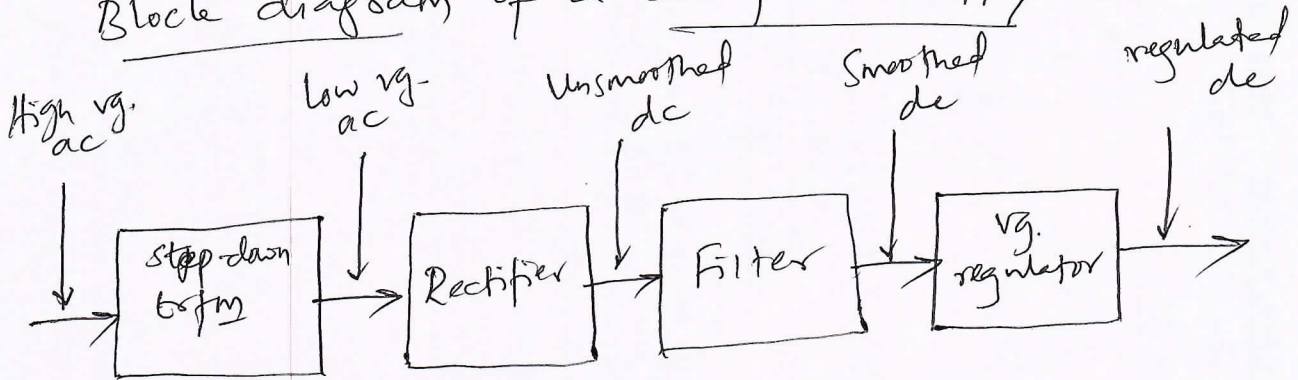 Block diagram of a
High vg.
ac
Low vg.
ac
Unsmoothed
dc
Smoothed
dc
regulated
dc
step-down
trfm
Rectifier
Filter
vg.
regulator